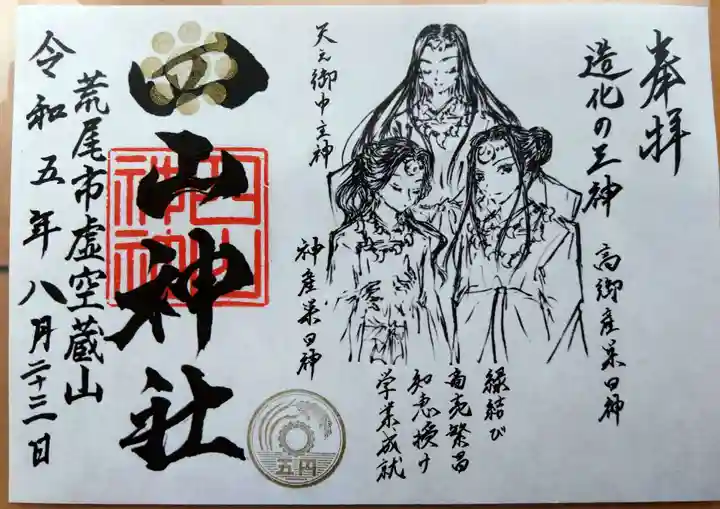 奉拝
造化の三神
高御産巣日神
天之御中主神
神産巣日神
縁結び
商売繁昌
知恵授け
学業成就
四山神社
四山
神社
五円
荒尾市虚空蔵山
令和五年八月二十三日